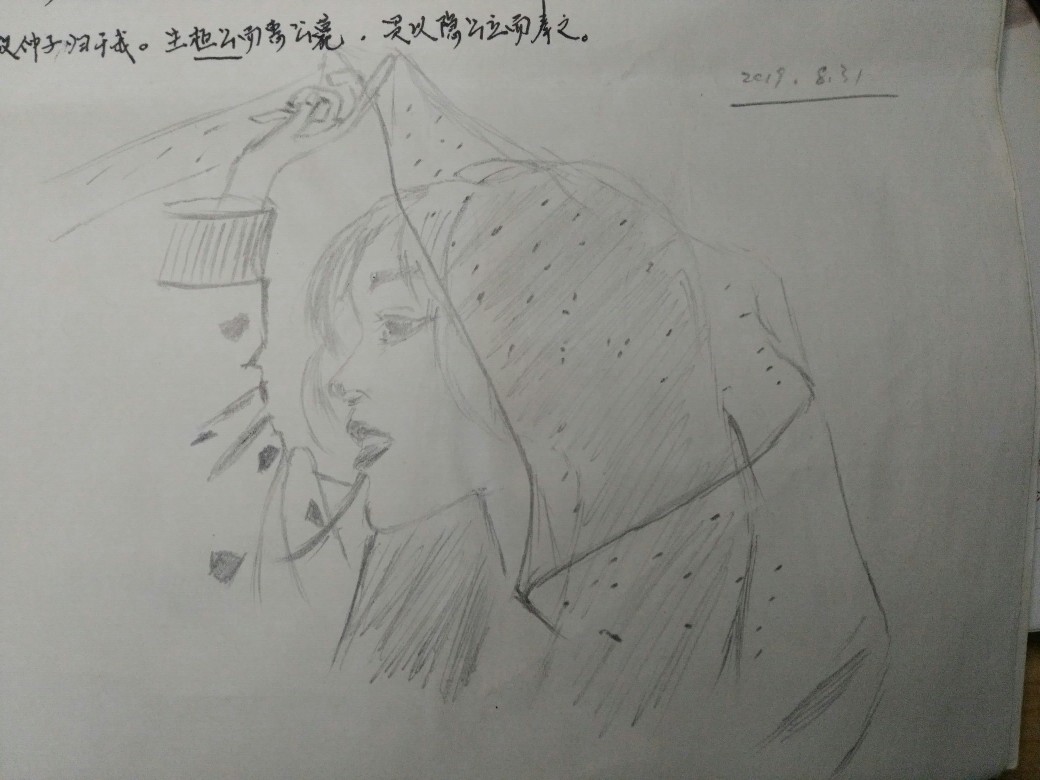 故仲子归于我。生桓公而惠公薨，是以隐公立而奉之。
2019. 8.31